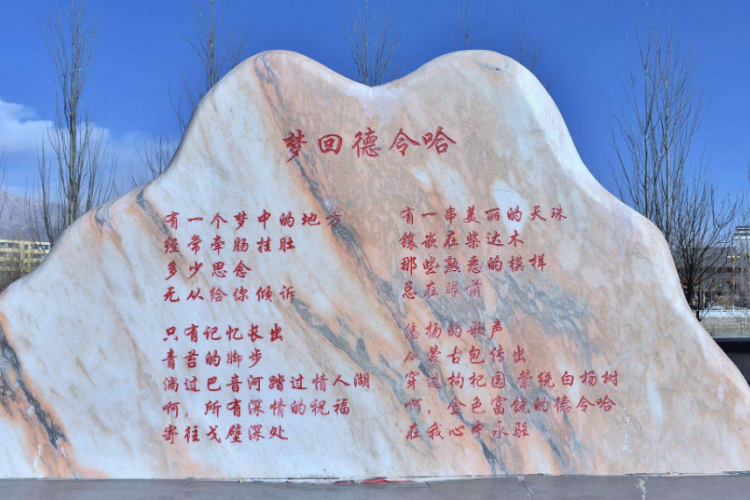 梦回德令哈
有一个梦中的地方
经常牵肠挂肚
多少思念
无从给你倾诉
只有记忆长出
青苔的脚步
淌过巴音河踏过情人湖
啊,所有深情的祝福
寄往戈壁深处
有一串美丽的天珠
镶嵌在柴达木
那些熟悉的模样
总在眼前
悠杨的歌声
从蒙古包传出
穿过枸杞园萦绕白杨树
啊,金色富饶的德令哈
在我心中永驻